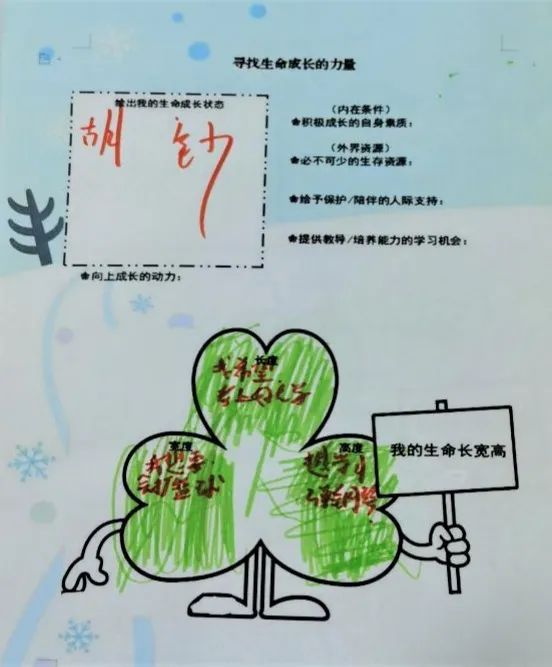 寻找生命成长的力量
绘出我的生命成长状态
胡
(内在条件)
积极成长的自身素质：
(外界资源)
必不可少的生存资源：
给予保护/陪伴的人际支持：
提供教导/培养能力的学习机会：
向上成长的动力：
长度
我希望
考上好大学
宽度
我想要
篮球
高度
想学习
我的生命长宽高